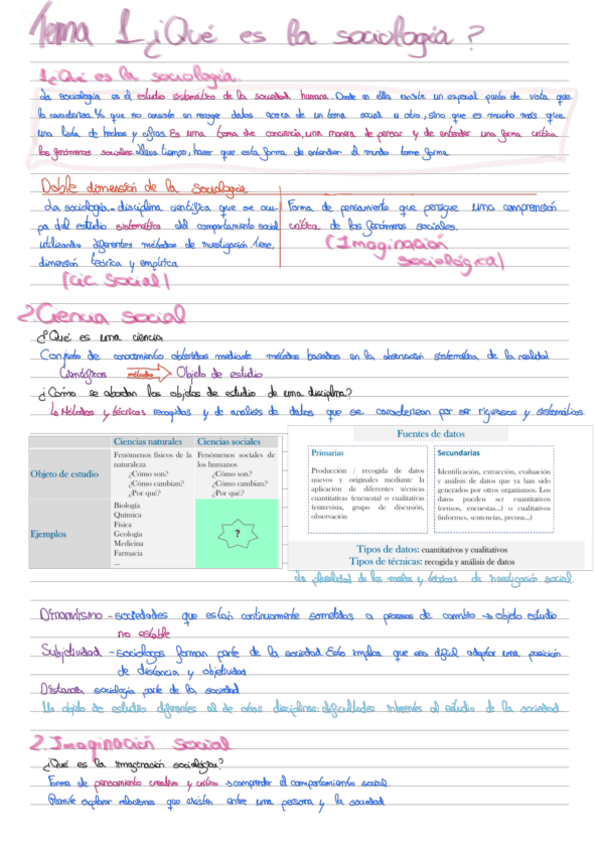 Tema 1 ¿Qué es la sociología?
1¿Qué es la sociología.
La sociología es el estudio sistemático de la sociedad humana. Donde en ella existe un especial punto de vista que
la caracteriza. Ya que no consiste en recoger datos acerca de un tema social u otro, sino que es mucho más que
una lista de hechos y cifras. Es una toma de conciencia, una manera de pensar y de entender una forma crítica
los fenómenos sociales. lleva tiempo, hacer que esta forma de entender el mundo tome forma.
Doble dimensión de la sociología
La sociología - disciplina científica que se ocu-
pa del estudio sistemático del comportamiento social
utilizando diferentes métodos de investigación tiene,
dimensión teórica y empírica.
(cic. social)
Forma de pensamiento que persigue una comprensión
crítica de los fenómenos sociales.
(Imaginación
sociológica)
2.Ciencia social
¿Qué es una ciencia
Conjunto de conocimiento obtenidos mediante métodos basados en la observación sistemática de la realidad
Científicos métodos Objeto de estudio
¿Cómo se abordan los objetos de estudio de una disciplina?
Métodos y técnicas recogidas y de analisis de datos que se caracterizan por ser rigurosos y sistemáticos.
Ciencias naturales Ciencias sociales
Objeto de estudio
Fenómenos físicos de la naturaleza
¿Cómo son?
¿Cómo cambian?
¿Por qué?
Fenómenos sociales de los humanos
¿Cómo son?
¿Cómo cambian?
¿Por qué?
Ejemplos
Biología
Química
Física
Geología
Medicina
Farmacia
...
?
Fuentes de datos
Primarias
Producción / recogida de datos
nuevos y originales mediante la
aplicación de diferentes técnicas
cuantitativas (encuesta) o cualitativas
(entrevista, grupo de discusión,
observación
Secundarias
Identificación, extracción, evaluación
y análisis de datos que ya han sido
generados por otros organismos. Los
datos pueden ser cuantitativos
(censos, encuestas...) o cualitativos
(informes, sentencias, prensa...)
Tipos de datos: cuantitativos y cualitativos
Tipos de técnicas: recogida y análisis de datos
La pluralidad de los métodos y técnicas de investigación social.
Dinamismo - sociedades que están continuamente sometidas a procesos de cambio → objeto estudio
no estable
Subjetividad - sociologos forman parte de la sociedad. Esto implica que sea difícil adoptar una posición
de distancia y objetividad
Distancia sociología parte de la sociedad
Un objeto de estudio diferentes al de otras disciplinas: dificultades inherentes al estudio de la sociedad
2.Imaginación social
¿Qué es la imaginación sociológica?
Forma de pensamiento creativo y crítico → comprender el comportamiento social.
Permite explorar relaciones que existen entre una persona y la sociedad